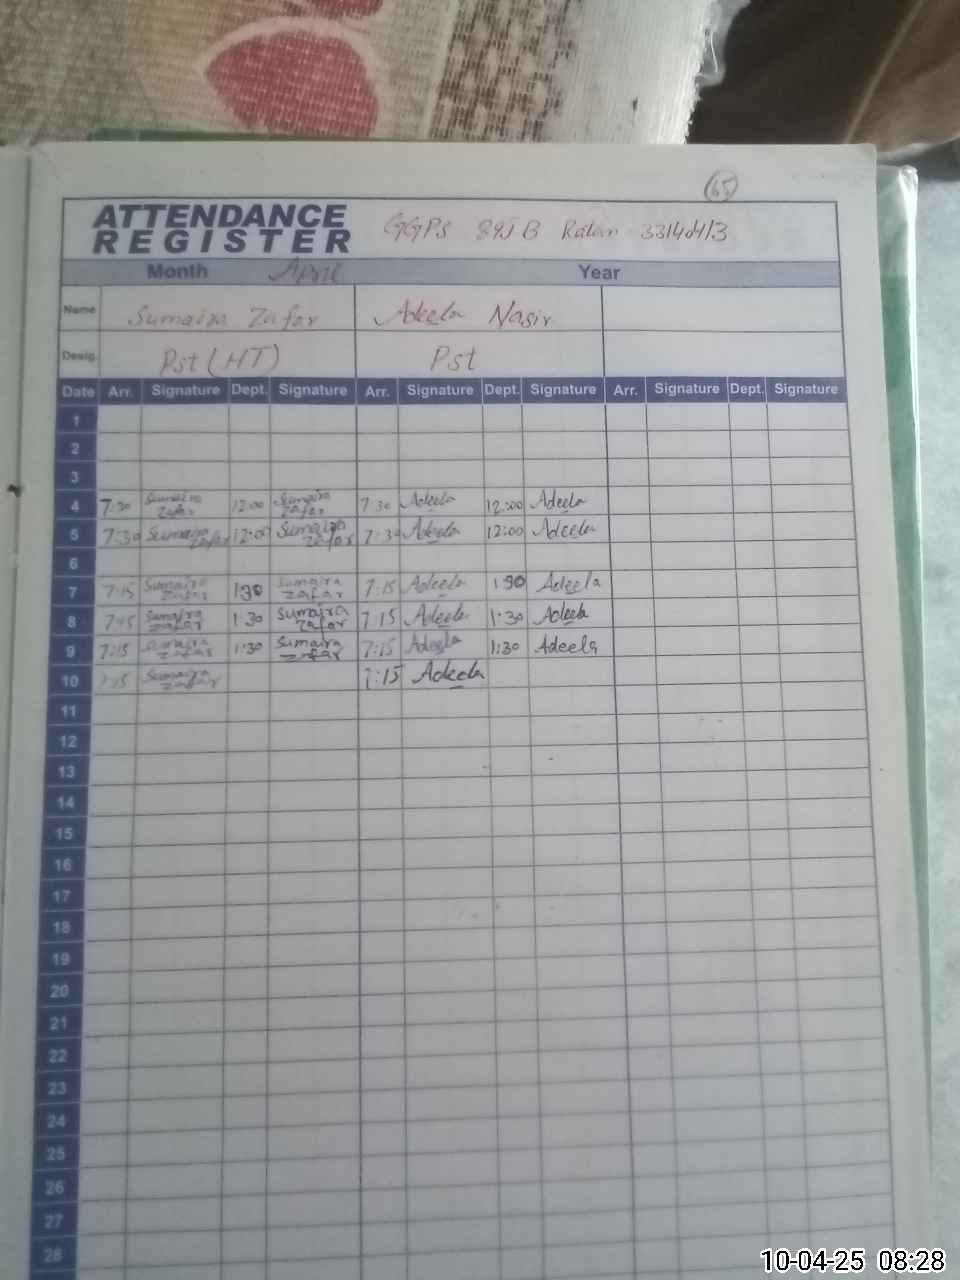 65
ATTENDANCE
REGISTER
GGPS 89J B Ratan 33140413
Month April Year
Name Sumaira Zafar Adeela Nasir
Desig. Pst (HT) Pst
Date Arr. Signature Dept. Signature Arr. Signature Dept. Signature Arr. Signature Dept. Signature
1
2
3
4 7:30 Sumaira Zafar 12:00 Sumaira Zafar 7:30 Adeela 12:00 Adeela
5 7:30 Sumaira Zafar 12:00 Sumaira Zafar 7:30 Adeela 12:00 Adeela
6
7 7:15 Sumaira Zafar 1:30 Sumaira Zafar 7:15 Adeela 1:30 Adeela
8 7:15 Sumaira Zafar 1:30 Sumaira Zafar 7:15 Adeela 1:30 Adeela
9 7:15 Sumaira Zafar 1:30 Sumaira Zafar 7:15 Adeela 1:30 Adeela
10 7:15 Sumaira Zafar 7:15 Adeela
11
12
13
14
15
16
17
18
19
20
21
22
23
24
25
26
27
28
10-04-25 08:28